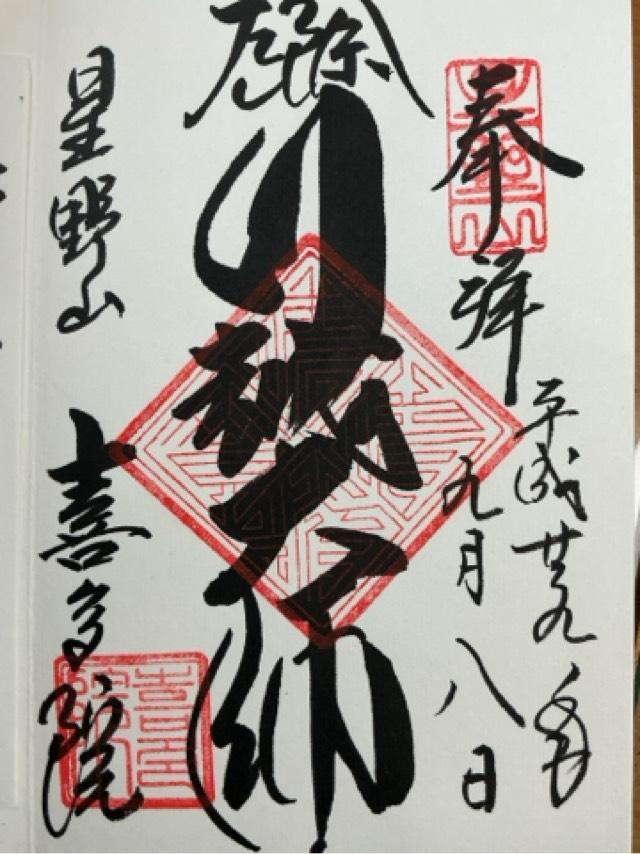 奉拝
平成廿九年
九月八日
川越大師
星野山
喜多院